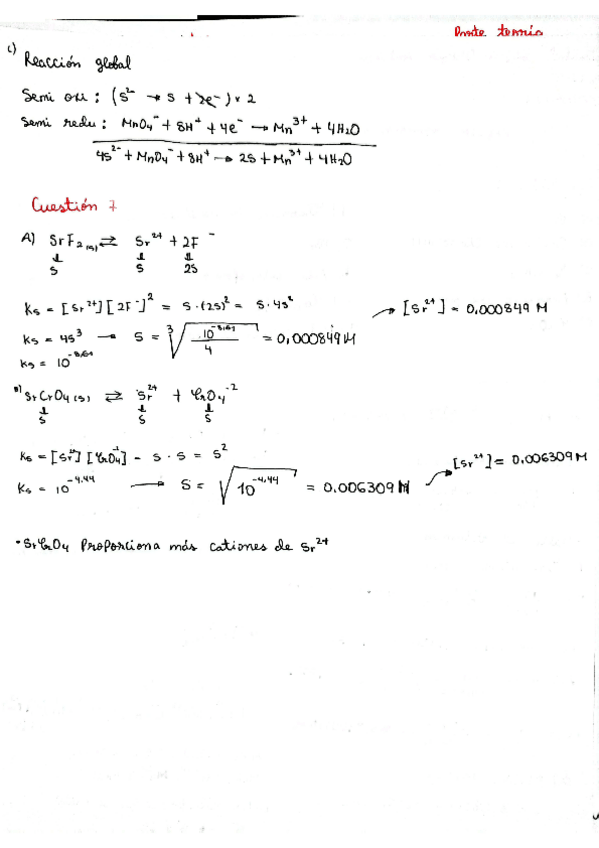 Parte teoría
c)
Reacción global
Semi oxi : (S²⁻ → S + 2e⁻) × 2
Semi redu : MnO₄⁻ + 8H⁺ + 4e⁻ → Mn³⁺ + 4H₂O
4S²⁻ + MnO₄⁻ + 8H⁺ → 2S + Mn³⁺ + 4H₂O
Cuestión 7
A) SrF₂ (s) ⇄ Sr²⁺ + 2F⁻
↓ ↓ ↓
S S 2S
Ks = [Sr²⁺][2F⁻]² = S·(2S)² = S·4S²
→ [Sr²⁺] = 0,000849 M
Ks = 4S³ → S = ∛(10^-8,61 / 4) = 0,000849 M
Ks = 10^-8,61
B) SrCrO₄ (s) ⇄ Sr²⁺ + CrO₄⁻²
↓ ↓ ↓
S S S
Ks = [Sr²⁺][CrO₄⁻²] = S · S = S²
→ [Sr²⁺] = 0.006309 M
Ks = 10^-4.44 → S = √(10^-4,44) = 0.006309 M
· SrCrO₄ Proporciona más cationes de Sr²⁺